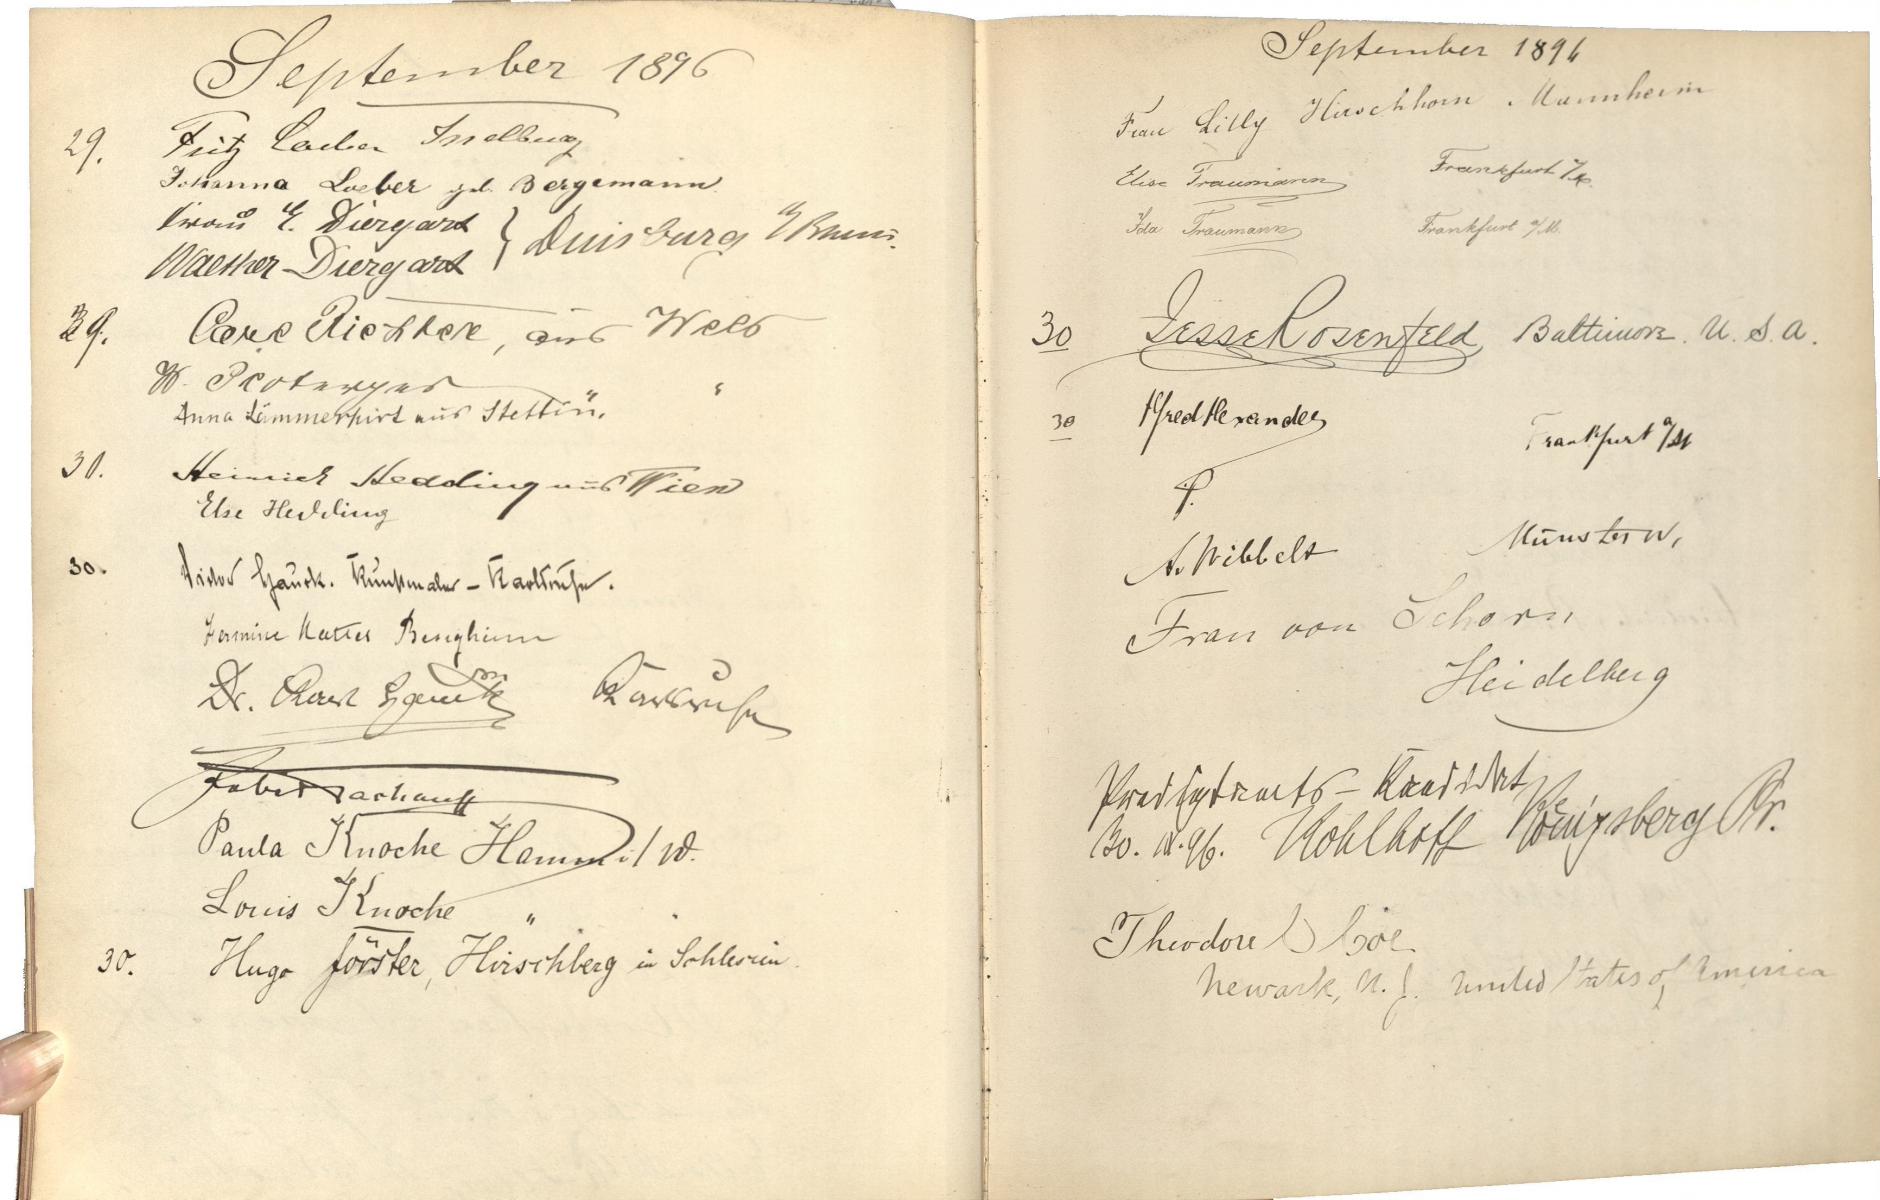 September 1896
29. Fritz Loeber
Johanna Loeber geb. Bergemann
Frau E. Diergart
Walther Diergart } Duisburg a/Rhein.
29. Carl Richter, aus Wels
W. " "
Anna Lämmerhirt aus Stettin.
30. Heinrich Hedding aus Wien
Else Hedding
30. Kunstmaler - Karlsruhe.
Dr. Karl Karlsruhe
Paula Knoche Hamm i/W.
Louis Knoche " "
30. Hugo Förster, Hirschberg in Schlesien.
September 1896
Frau Lilly Hirschhorn Mannheim
Elise Traumann Frankfurt a/M.
Ida Traumann Frankfurt a/M.
30 Jesse Rosenfeld, Baltimore. U. S. A.
30 Alfred Alexander Frankfurt a/M
P.
A. Wibbelt Münster W,
Frau von Schorn
Heidelberg
Predigtamts-Kandidat
30. IX. 96. Kohlhoff Königsberg Pr.
Theodore Coe
Newark, N. J. United States of America